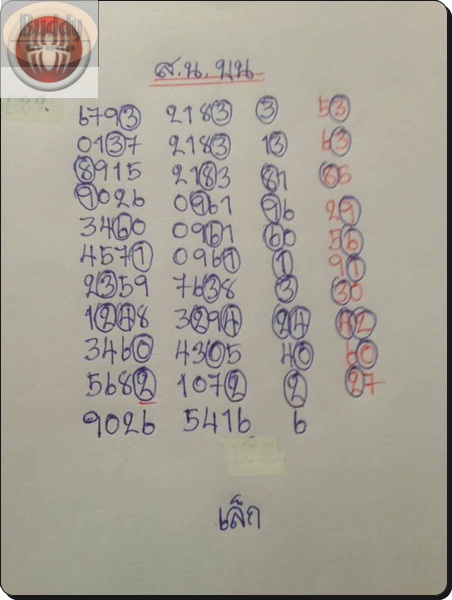 Buddy
ส.น. บน
6793 2183 3 53
0137 2183 13 63
8915 2183 81 85
9026 0961 96 29
3460 0961 60 56
4571 0961 1 91
2359 7638 3 30
1248 3294 24 42
3460 4305 40 60
5682 1072 2 27
9026 5416 6
เล็ก